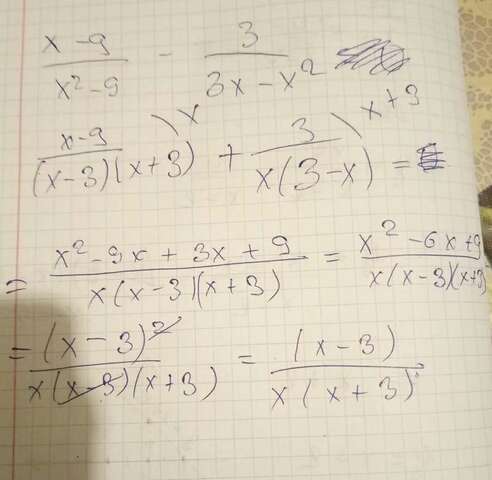 x-9/x²-9 - 3/3x-x²
x-9/(x-3)(x+3) \x + 3/x(3-x) \x+3 =
= x²-9x+3x+9/x(x-3)(x+3) = x²-6x+9/x(x-3)(x+3)
= (x-3)²/x(x-3)(x+3) = (x-3)/x(x+3)